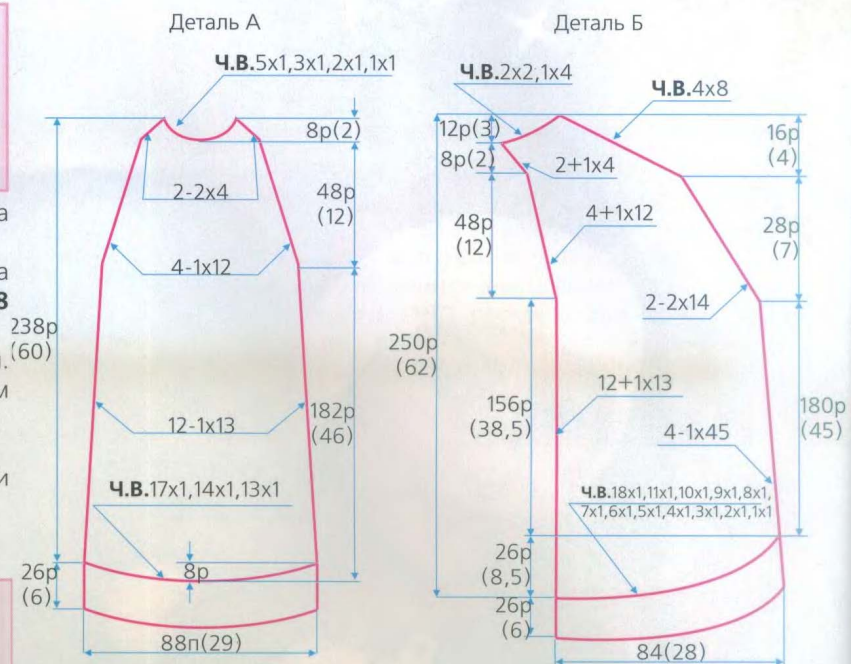 Деталь А
Ч.В.5х1,3х1,2х1,1х1
8р(2)
2-2х4
48р
(12)
4-1х12
238р
(60)
12-1х13
182р
(46)
Ч.В.17х1,14х1,13х1
8р
26р
(6)
88п(29)
Деталь Б
Ч.В.2х2,1х4
Ч.В.4х8
12р(3)
16р
(4)
8р(2)
2+1х4
48р
(12)
4+1х12
28р
(7)
2-2х14
250р
(62)
12+1х13
156р
(38,5)
4-1х45
180р
(45)
Ч.В.18х1,11х1,10х1,9х1,8х1,
7х1,6х1,5х1,4х1,3х1,2х1,1х1
26р
(8,5)
26р
(6)
84(28)
а
а
8
м
и